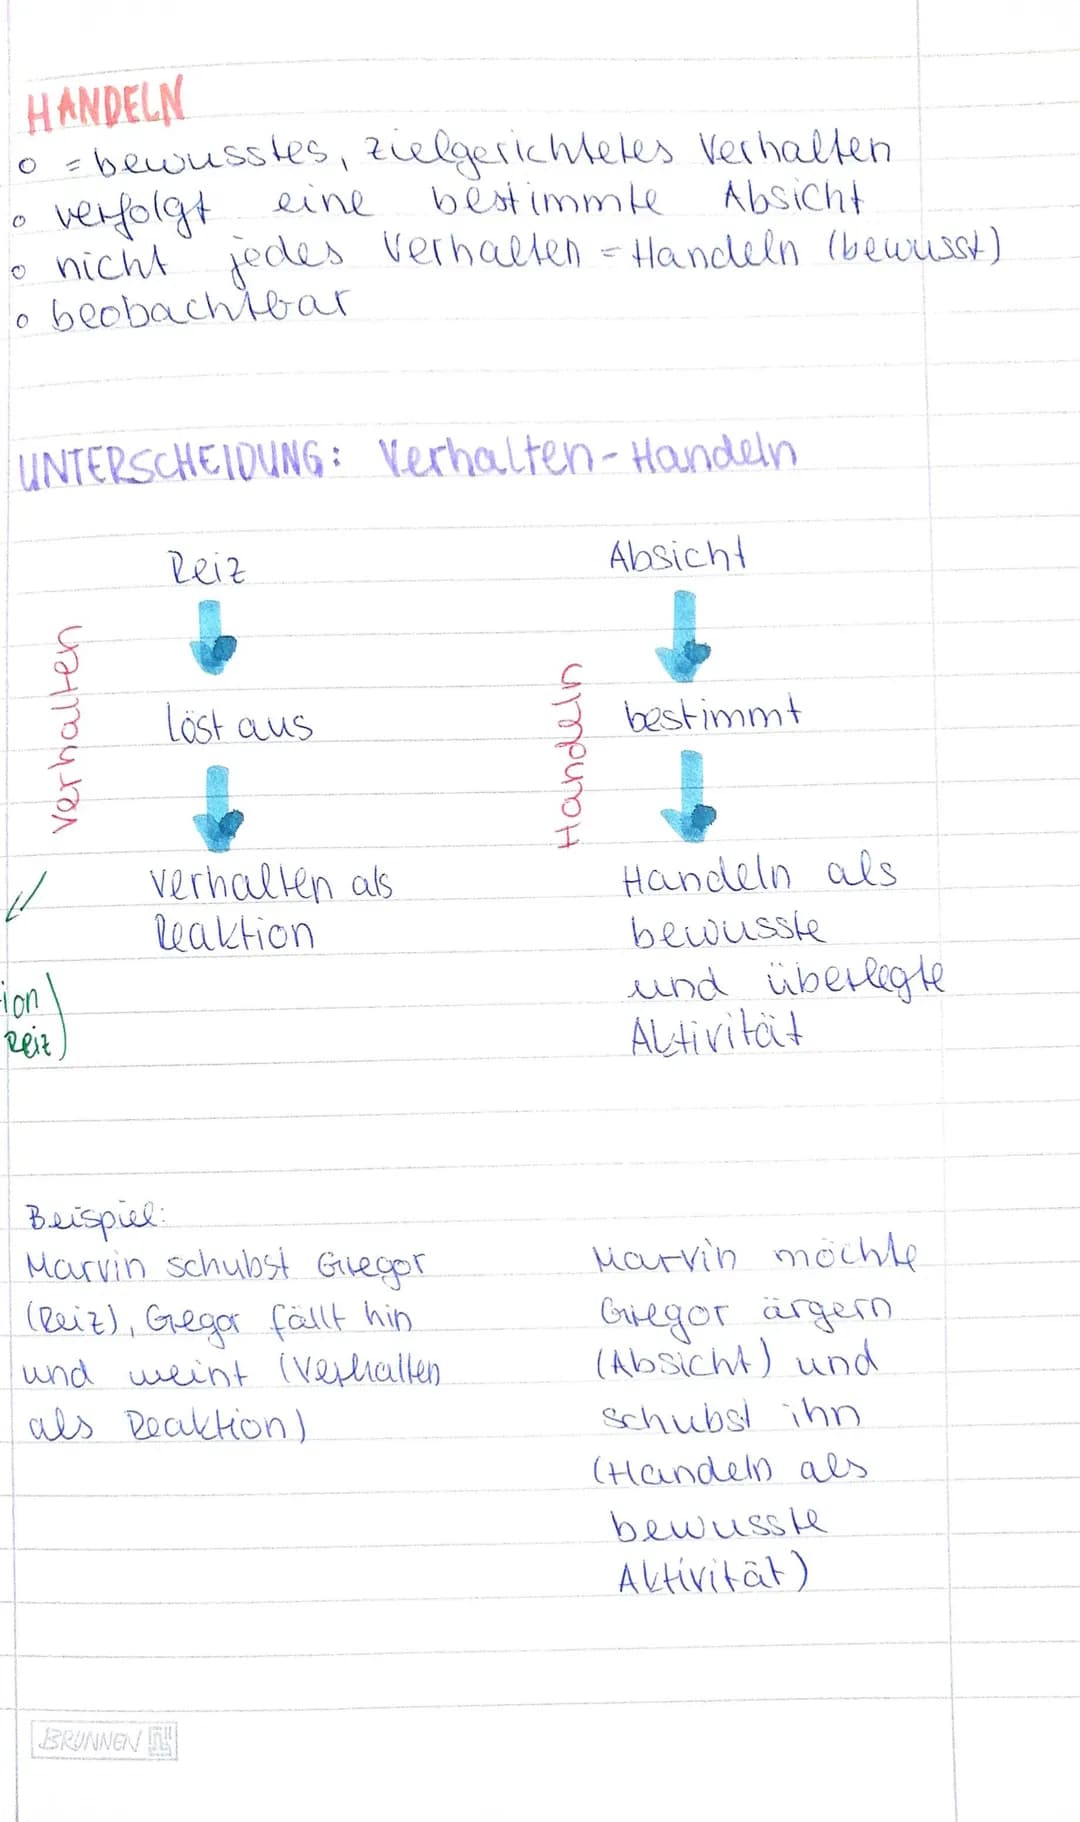 HANDELN
o = bewusstes, zielgerichtetes Verhalten
o verfolgt eine bestimmte Absicht
o nicht jedes Verhalten = Handeln (bewusst)
o beobachtbar
UNTERSCHEIDUNG: Verhalten - Handeln
Verhalten
Reiz
löst aus
Verhalten als
Reaktion
ion
Reiz)
Handeln
Absicht
bestimmt
Handeln als
bewusste
und überlegte
Aktivität
Beispiel:
Marvin schubst Gregor
(Reiz), Gregor fällt hin
und weint (Verhalten
als Reaktion)
Marvin möchte
Gregor ärgern
(Absicht) und
schubst ihn
(Handeln als
bewusste
Aktivität)
BRUNNEN